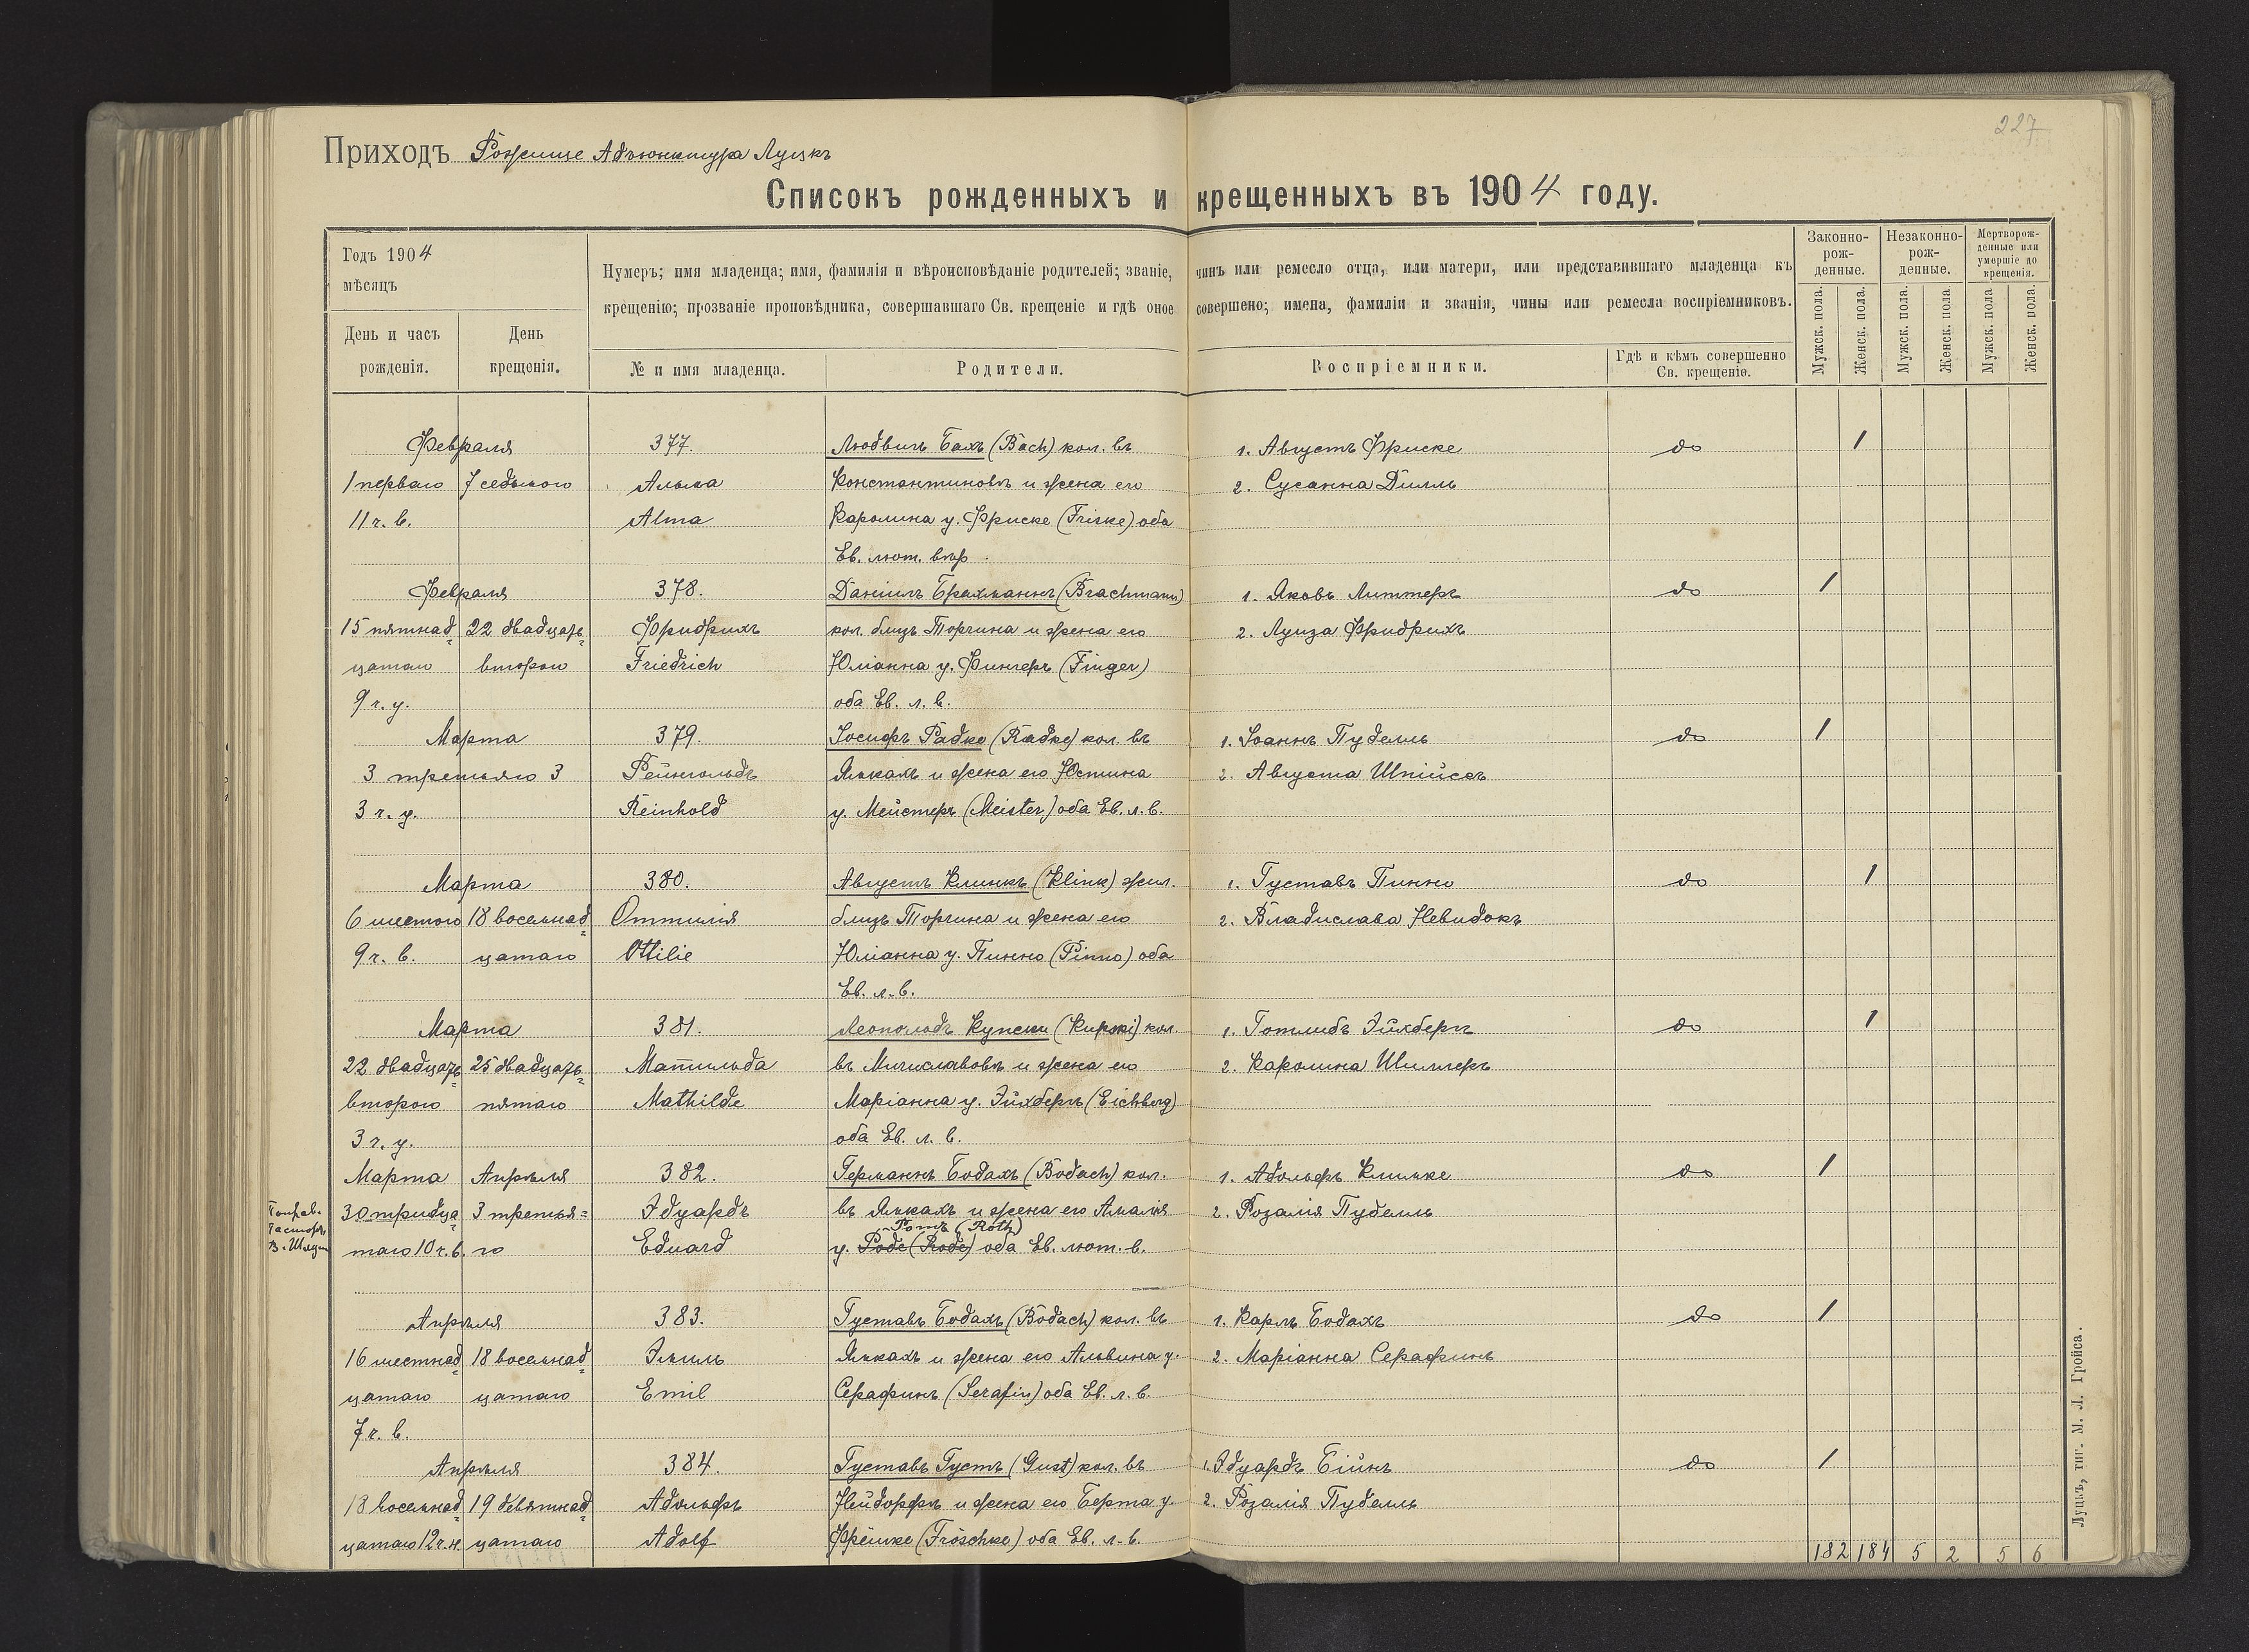 227
Приходъ Рожище Адъюнктура Луцкъ
Списокъ рожденныхъ и крещенныхъ въ 1904 году.
Годъ 1904
мѣсяцъ
День и часъ рожденія.
День крещенія.
Нумеръ; имя младенца; имя, фамилія и вѣроисповѣданіе родителей; званіе, чинъ или ремесло отца, или матери, или представившаго младенца къ
крещенію; прозваніе проповѣдника, совершавшаго Св. крещеніе и гдѣ оное совершено; имена, фамиліи и званія, чины или ремесла воспріемниковъ.
№ и имя младенца.
Родители.
Воспріемники.
Гдѣ и кѣмъ совершенно Св. крещеніе.
Законно-рож-денные.
Незаконно-рож-денные.
Мертворож-денные или умершіе до крещенія.
Мужск. пола.
Женск. пола.
Мужск. пола.
Женск. пола.
Мужск. пола
Женск. пола.
Февраля 377. Людвигъ Бахъ (Bach) кол. въ 1. Августъ Фриске до 1
1 перваго 7 седьмого Альма Константиновѣ и жена его 2. Сусанна Дилль
11 ч. в. Alma Каролина у. Фриске (Friske) оба
Ев. лют. вѣр.
Февраля 378. Даніилъ Брахманнъ (Brachmann) 1. Яковъ Литтеръ до 1
15 пятнад= 22 двадцать= Фридрихъ кол. близъ Торчина и жена его 2. Луиза Фридрихъ
цатаго второго Friedrich Юліанна у. Фингеръ (Finger)
9 ч. у. оба Ев. л. в.
Марта 379. Іосифъ Радке (Radke) кол. въ 1. Іоаннъ Пуделль до 1
3 третьяго 3 Рейнгольдъ Ямкахъ и жена его Юстина 2. Августа Шпійсъ
3 ч. у. Reinhold у. Мейстеръ (Meister) оба Ев. л. в.
Марта 380. Августъ Клинкъ (Klink) жил. 1. Густавъ Пинно до 1
6 шестого 18 восемнад= Оттилія близъ Торчина и жена его 2. Владислава Невидокъ
9 ч. в. цатаго Ottilie Юліанна у. Пинно (Pinno) оба
Ев. л. в.
Марта 381. Леопольдъ Купски (Kupski) кол. 1. Готлибъ Эйхбергъ до 1
22 двадцать= 25 двадцать= Матильда въ Мичиславовѣ и жена его 2. Каролина Шиллеръ
второго пятаго Mathilde Маріанна у. Эйхбергъ (Eichberg)
3 ч. у. оба Ев. л. в.
Марта Апрѣля 382. Германнъ Бодахъ (Bodach) кол. 1. Адольфъ Климке до 1
Поправ. Пасторъ
30 тридца= 3 третья= Эдуардъ въ Ямкахъ и жена его Амалія 2. Розалія Пуделль
Ротъ (Roth)
таго 10 ч. в. го Eduard у. Роде (Rode) оба Ев. лют. в.
Апрѣля 383. Густавъ Бодахъ (Bodach) кол. въ 1. Карлъ Бодахъ до 1
16 шестнад= 18 восемнад= Эмиль Ямкахъ и жена его Альвина у. 2. Маріанна Серафинъ
цатаго цатаго Emil Серафинъ (Serafin) оба Ев. л. в.
7 ч. в.
Апрѣля 384. Густавъ Густъ (Gust) кол. въ 1. Эдуардъ Бійнъ до 1
18 восемнад= 19 девятнад= Адольфъ Нейдорфѣ и жена его Берта у. 2. Розалія Пуделль
цатаго 12 ч. н. цатаго Adolf Фрёшке (Fröschke) оба Ев. л. в.
182 184 5 2 5 6
Луцкъ, тип. М. Л. Гройса.